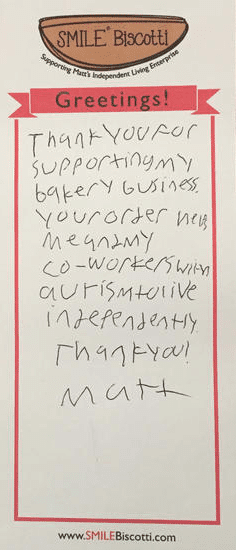 SMILE® Biscotti
Supporting Matt's Independent Living Enterprise
Greetings!
Thank You For
supporting my
bakery business.
Your order helps
me and my
co-workers with
autism to live
independently.
Thank you!
Matt
www.SMILEBiscotti.com